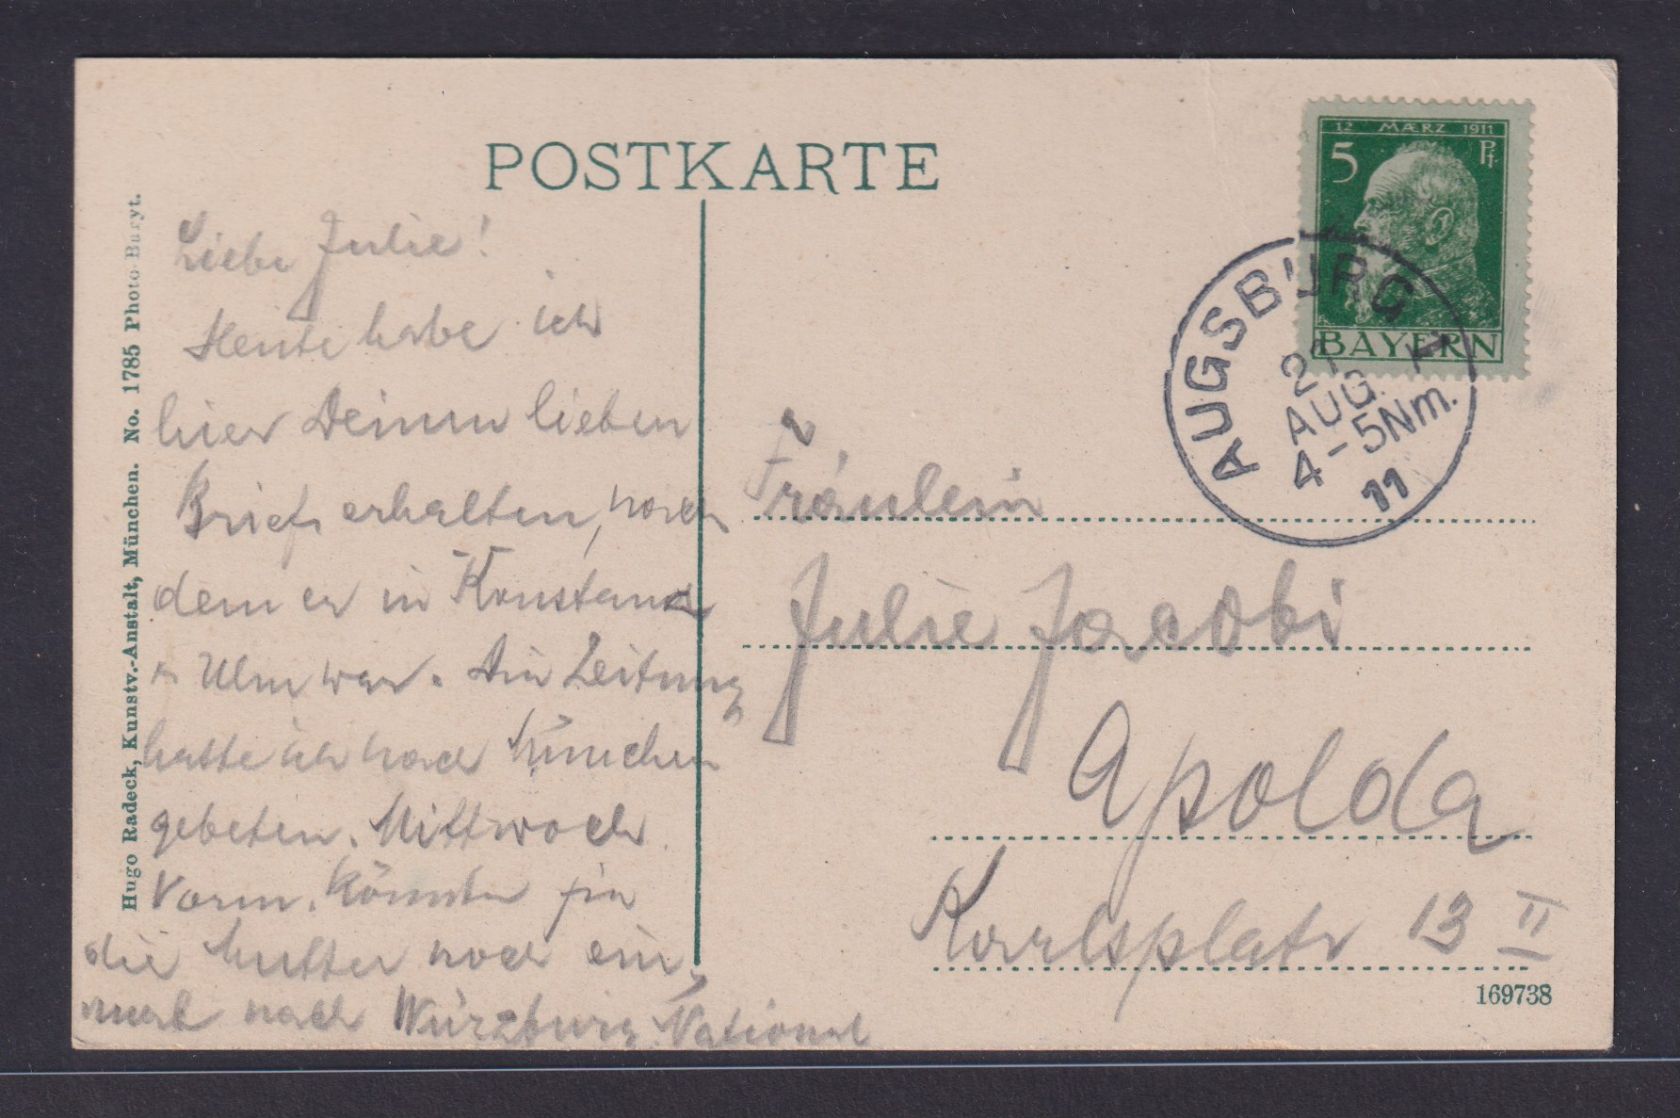 POSTKARTE
12 MÆRZ 1911
5 Pf.
BAYERN
AUGSBURG 1
AUG.
4-5Nm.
11
Hugo Radeck, Kunstv.-Anstalt, München. No. 1785 Photo-Baryt.
Liebe Julie!
Heute habe ich
hier Deinen lieben
Brief erhalten, nach
dem er in Konstanz
Ulm war. Die Zeitung
hatte ich nach München
gebeten. Mittwoch
Vorm. könnte
die Mutter noch ein
mal nach Würzburg, National
Fräulein
Julie Jacobi
Apolda
Karlsplatz 13 II
169738